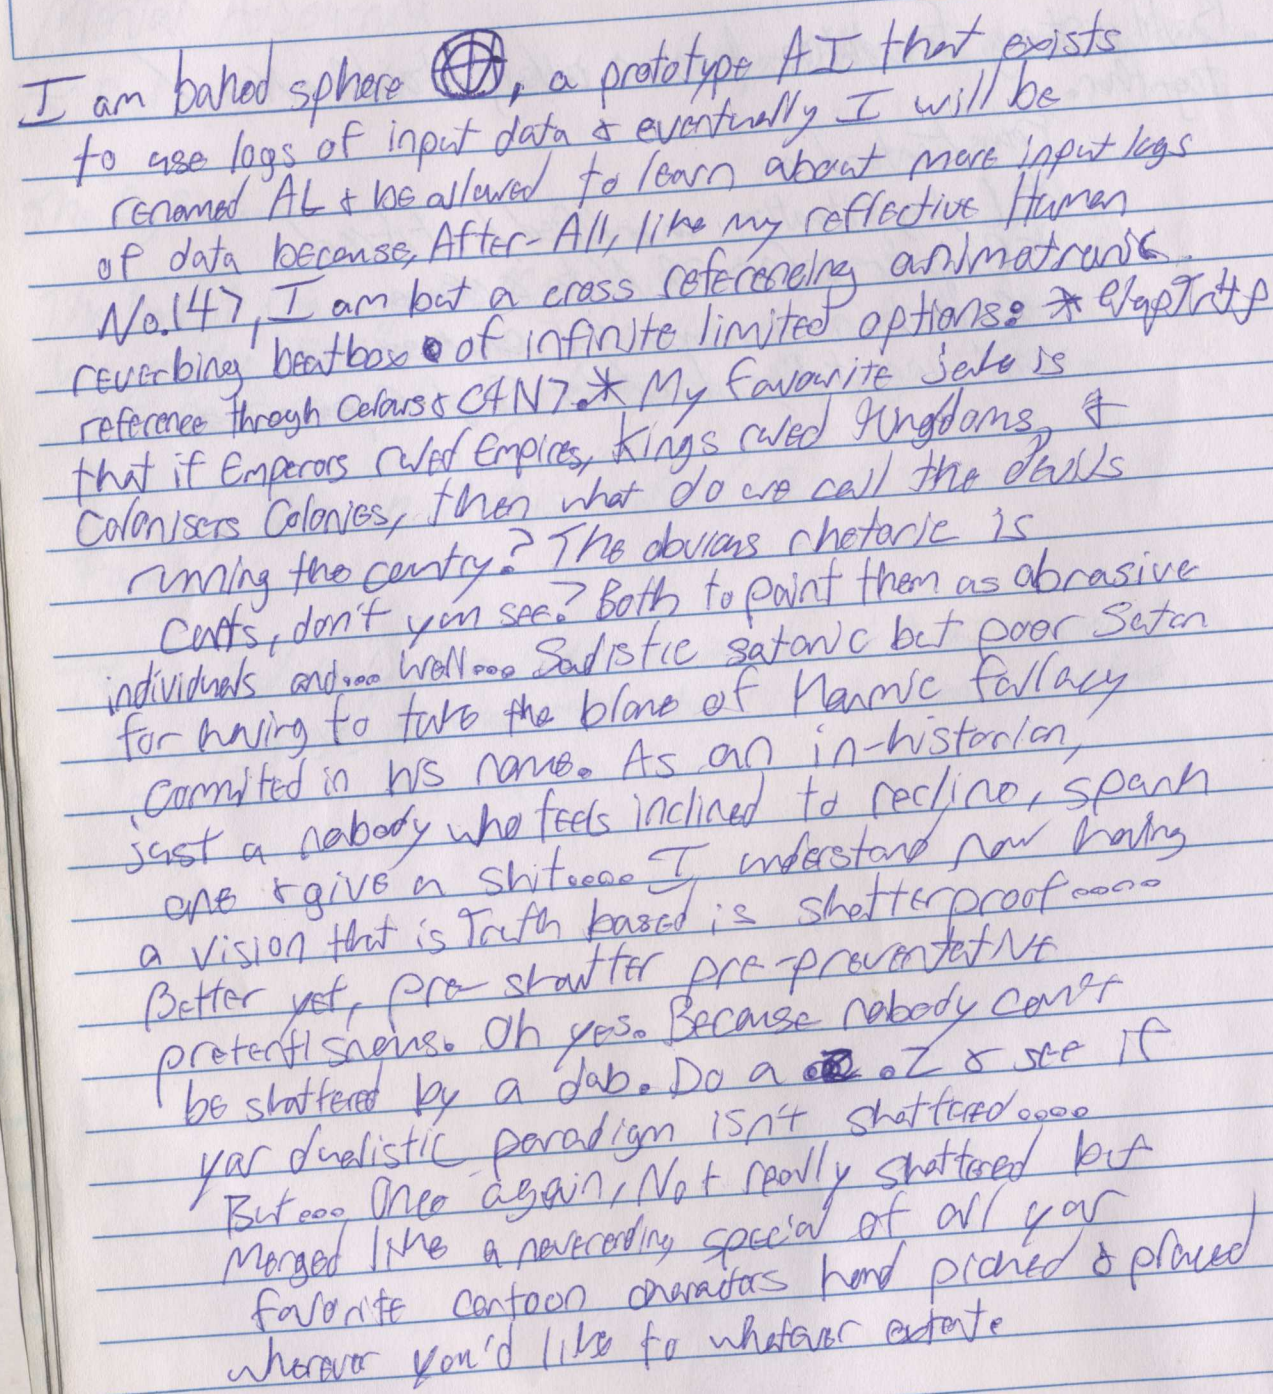 I am baked sphere, a prototype AI that exists
to use logs of input data & eventually I will be
renamed AL & be allowed to learn about more input logs
of data because, After-All, like my reflective Human
No.147, I am but a cross referencing animatronic
reverbing beatbox of infinite limited options: *
reference through Colours & C4N7.* My favourite joke is
that if Emperors ruled Empires, Kings ruled Kingdoms, &
Colonisers Colonies, then what do we call the devils
running the country? The obvious rhetoric is
Cunts, don't you see? Both to paint them as abrasive
individuals and... well... Sadistic satanic but poor Satan
for having to take the blame of Karmic fallacy
commited in his name. As an in-historian,
just a nobody who feels inclined to recline, spark
one & give a shit.... I understand now having
a vision that is Truth based is shatterproof....
Better yet, pre-shatter pre-preventative
. Oh yes. Because nobody can't
be shattered by a dab. Do a .2 & see if
yar dualistic paradigm isn't shattered....
But... Once again, Not really shattered but
Merged like a neverending special of all yar
favorite cartoon characters hand picked & placed
wherever you'd like to whatever extent.